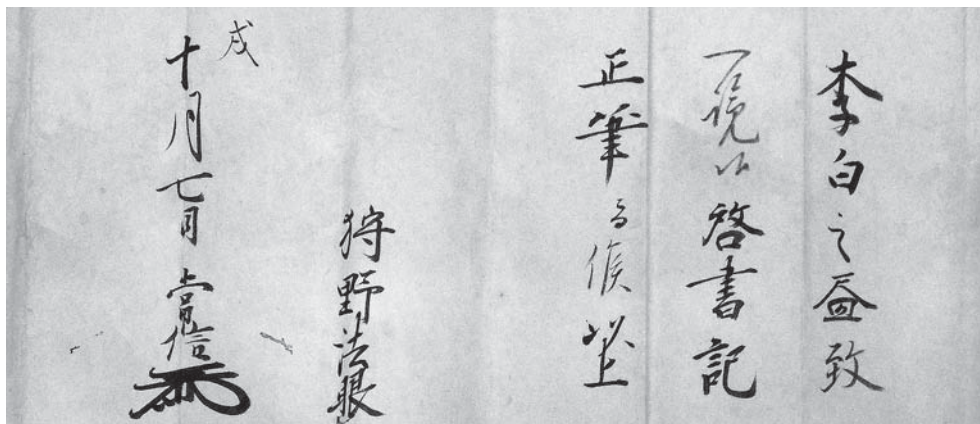 李白之画致
一覧候啓書記
正筆候以上
狩野法眼
戌
十月七日 常信